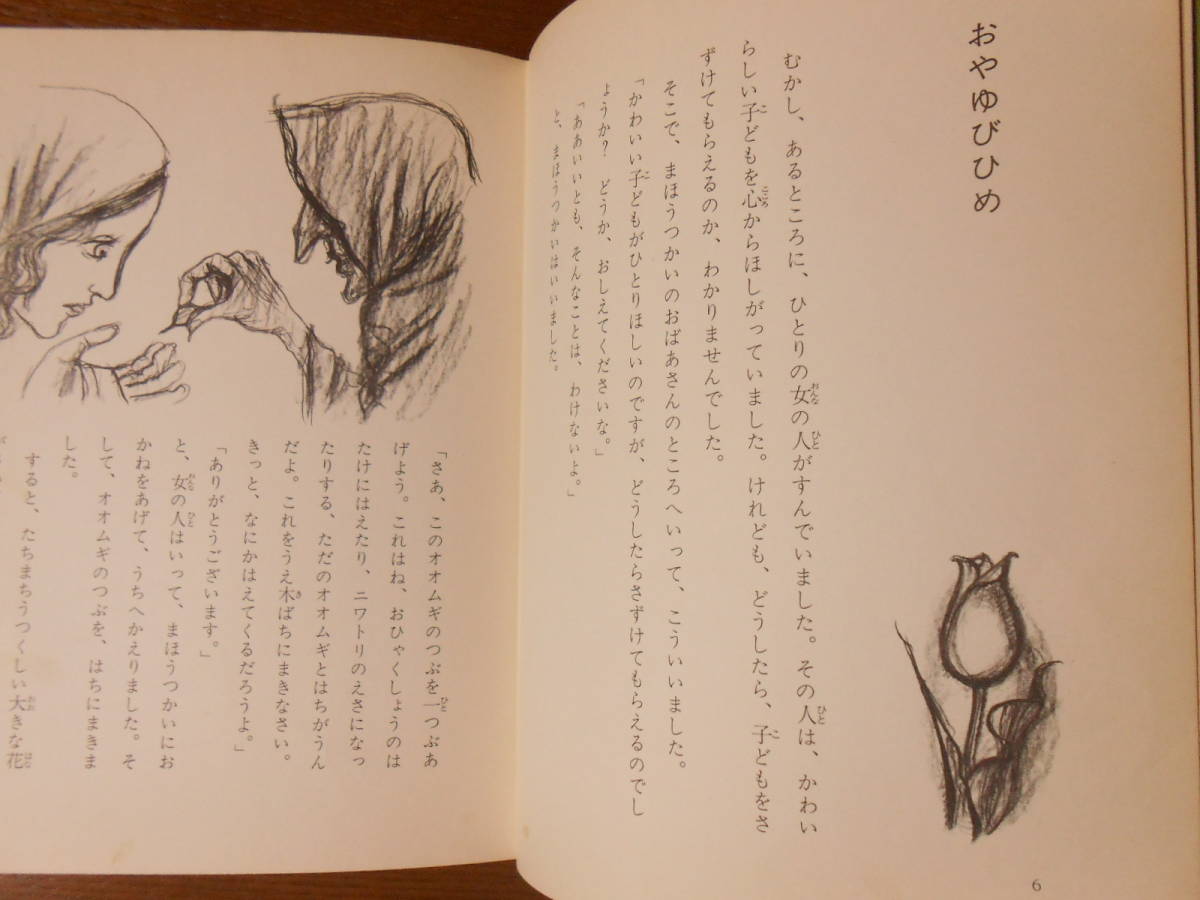 おやゆびひめ
むかし、あるところに、ひとりの女の人がすんでいました。その人は、かわい
らしい子どもを心からほしがっていました。けれども、どうしたら、子どもをさ
ずけてもらえるのか、わかりませんでした。
そこで、まほうつかいのおばあさんのところへいって、こういいました。
「かわいい子どもがひとりほしいのですが、どうしたらさずけてもらえるのでし
ょうか? どうか、おしえてくださいな。」
「ああいいとも、そんなことは、わけないよ。」
と、まほうつかいはいいました。
6
「さあ、このオオムギのつぶを一つぶあ
げよう。これはね、おひゃくしょうのは
たけにはえたり、ニワトリのえさになっ
たりする、ただのオオムギとはちがうん
だよ。これをうえ木ばちにまきなさい。
きっと、なにかはえてくるだろうよ。」
「ありがとうございます。」
と、女の人はいって、まほうつかいにお
かねをあげて、うちへかえりました。そ
して、オオムギのつぶを、はちにまきま
した。
すると、たちまちうつくしい大きな花